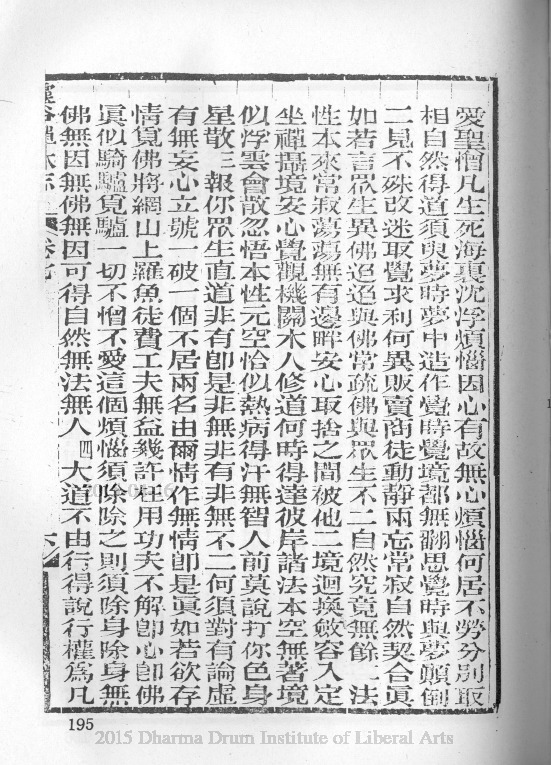 愛聖憎凡生死海裏沈浮煩惱因心有故無心煩惱何居不勞分別取
相自然得道須臾夢時夢中造作覺時覺境都無翻思覺時與夢顛倒
二見不殊改迷取覺求利何異販賣商徒動靜兩忘常寂自然契合眞
如若言眾生異佛迢迢與佛常疏佛與眾生不二自然究竟無餘 一法
性本來常寂蕩蕩無有邊畔安心取捨之間被他二境迴換斂容入定
坐禪攝境安心覺觀機關木人修道何時得達彼岸諸法本空無著境
似浮雲會散忽悟本性元空恰似熱病得汗無智人前莫說打你色身
星散三報你眾生直道非有卽是非無非有非無不二何須對有論虛
有無妄心立號一破一個不居兩名由爾情作無情卽是眞如若欲存
情覓佛將網山上羅魚徒費工夫無益幾許枉用功夫不解卽心卽佛
眞似騎驢覓驢一切不憎不愛這個煩惱須除除之則須除身除身無
佛無因無佛無因可得自然無法無人四大道不由行得說行權爲凡
卷七
195
2015 Dharma Drum Institute of Liberal Arts